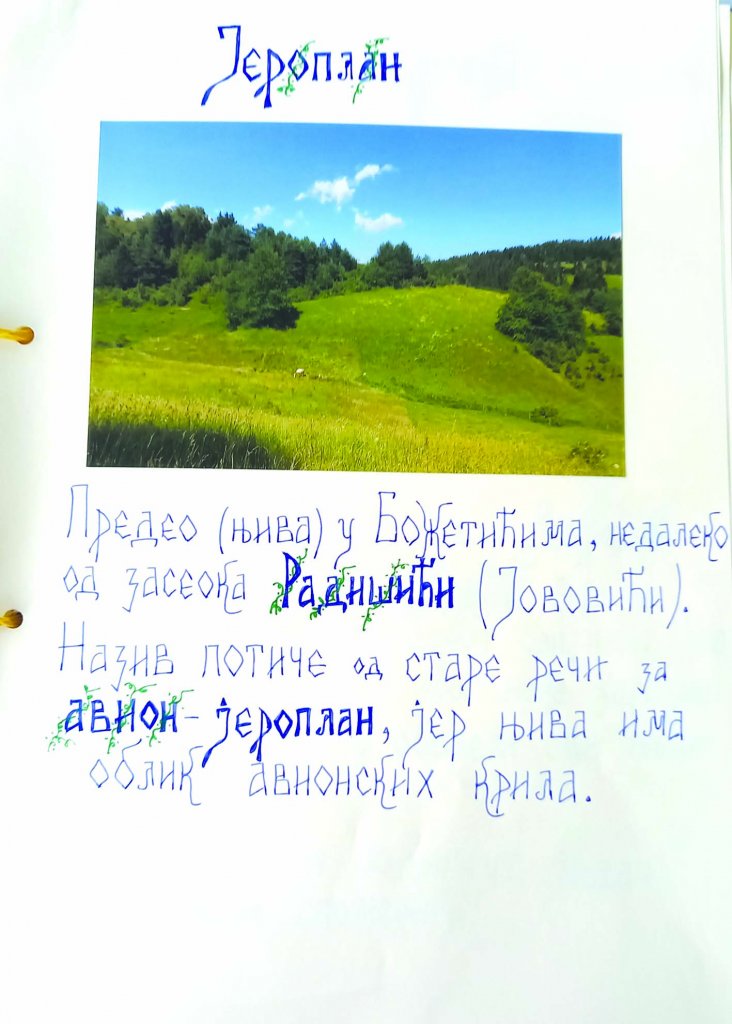 Јероплан
Предео (њива) у Божетићима, недалеко
од засеока Радишићи (Јововићи).
Назив потиче од старе речи за
авион - јероплан, јер њива има
облик авионских крила.